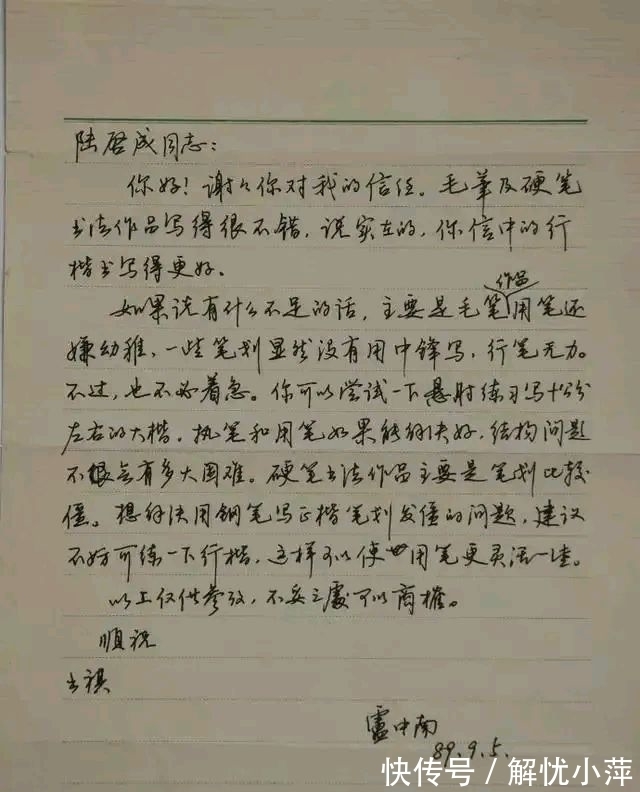 陆啓成同志：
你好！谢谢你对我的信任。毛筆及硬笔
书法作品写得很不错，说实在的，你信中的行
楷书写得更好。
如果说有什么不足的话，主要是毛笔作品用笔还
嫌幼稚，一些笔划显然没有用中锋写，行笔无力。
不过，也不必着急。你可以尝试一下悬肘练习写十公分
左右的大楷。执笔和用笔如果能解决好，结构问题
不会有多大困难。硬笔书法作品主要是笔划比较
僵。想解决用钢笔写正楷笔划发僵的问题，建议
不妨可练一下行楷，这样可以使用笔更灵活一些。
以上仅供参考，不妥之處可以商榷。
順祝
书祺
盧中南
89.9.5.
快传号/解忧小萍